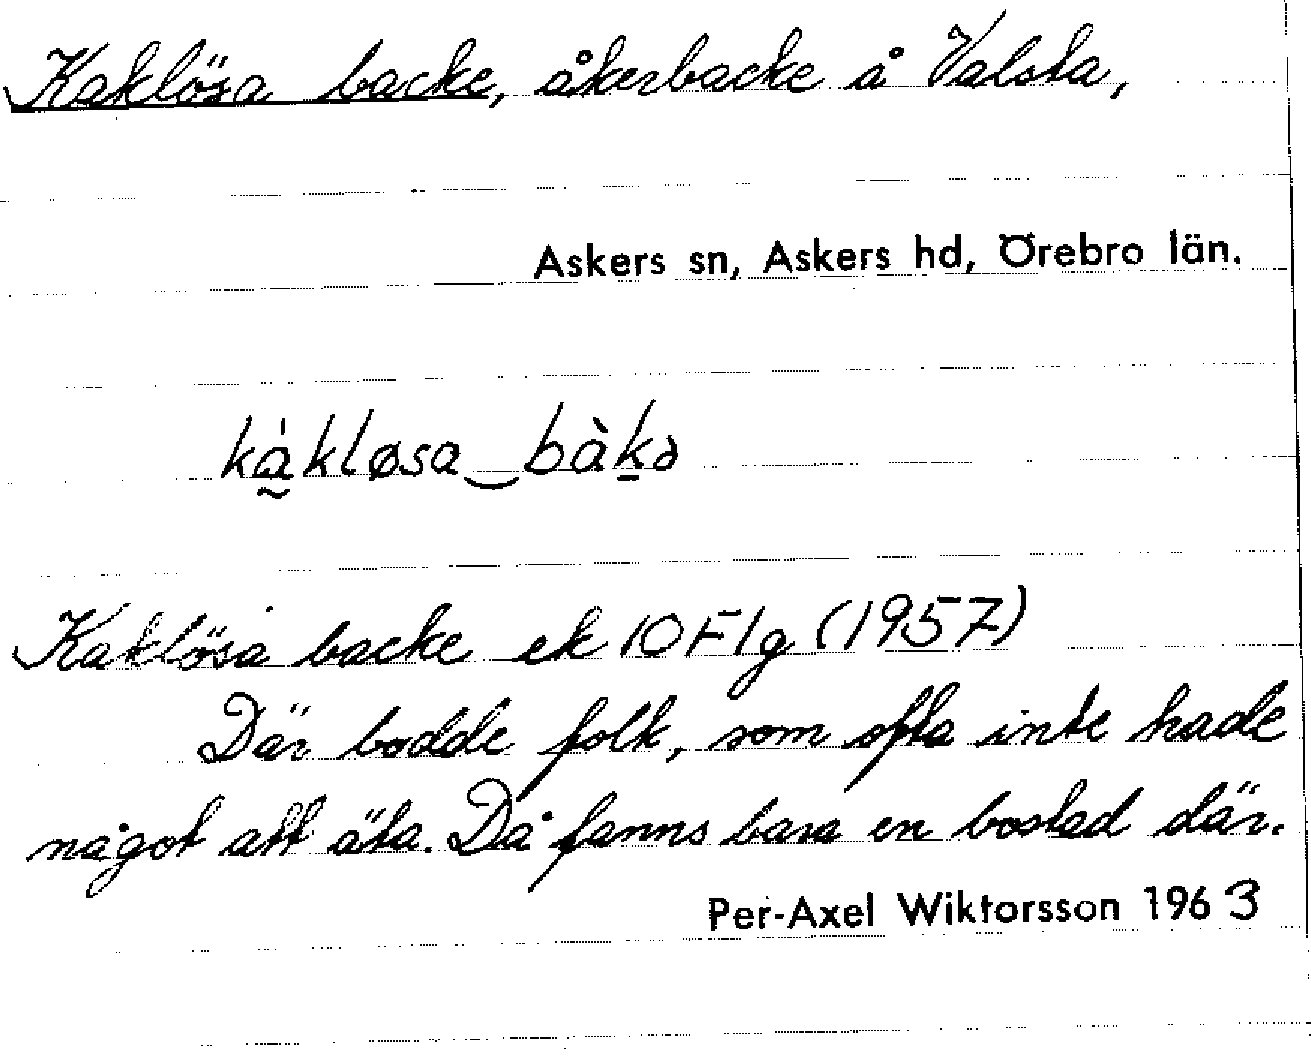 Kaklösa backe, åkerbacke å Valsta,
Askers sn, Askers hd, Örebro län.
kà̰kløsa‿bàḵə
Kaklösa backe ek 10Flg (1957)
Där bodde folk, som ofta inte hade
något att äta. Då fanns bara en bostad där.
Per-Axel Wiktorsson 1963